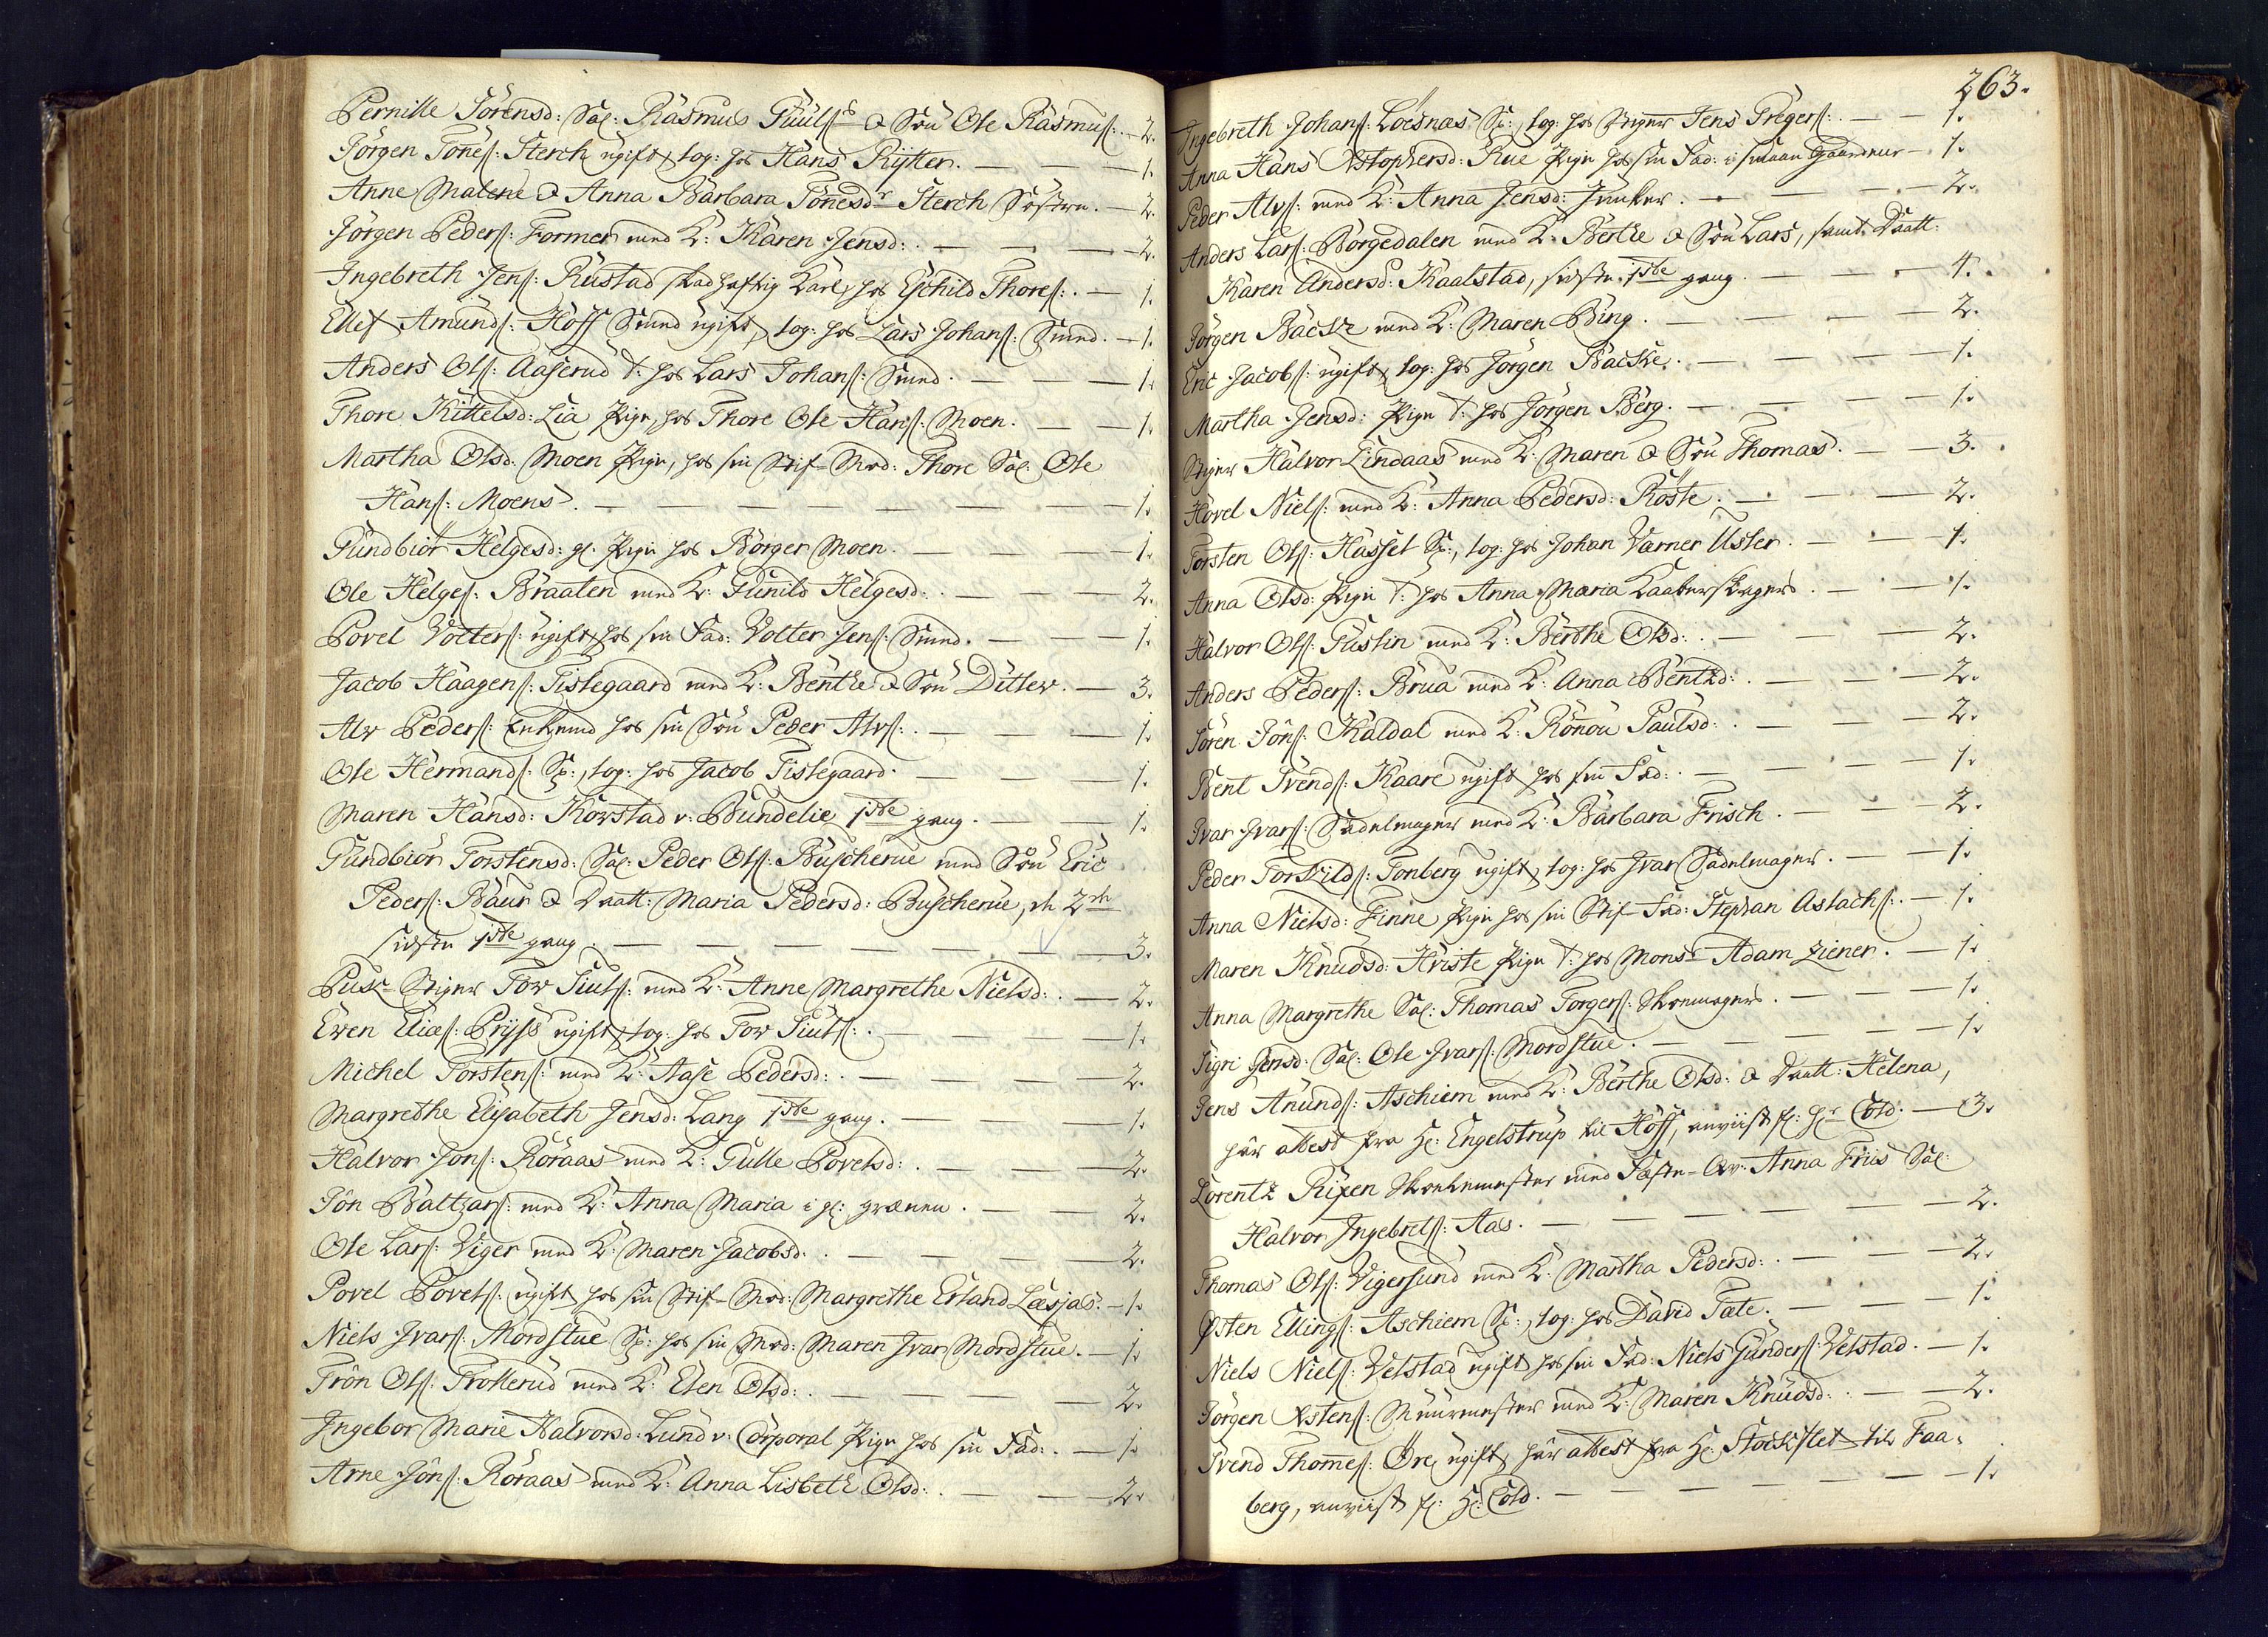 Pernille Sörensd: Sal: Rasmus Guuls & Sön Ole Rasmuss:. — 2.
Jörgen Tönes: Sterch ugift, log: hos Hans Rytter. — — — 1.
Anne Malene & Anna Barbara Tönesdr Sterch Söstre. — 2.
Jörgen Peders: Former med K: Karen Jensd:. — — — 2.
Ingebreth Jens: Rustad skadhaftig Karl, hos Eschild Thores:. — 1.
Ellef Amunds: Hoff Smed ugift, log: hos Lars Johans: Smed. — 1.
Anders Ols: Aaserud T: hos Lars Johans: Smed. — — — 1.
Thore Kittelsd: Lia Pige, hos Thore Ole Hans: Moen. — — 1.
Martha Olsd: Moen Pige, hos sin Stif-Mod: Thore Sal: Ole
Hans: Moens. — — — — — — — 1.
Gundbiör Helgesd: gl. Pige hos Börger Moen. — — — 1.
Ole Helges: Braaten med K: Gunild Helgesd:. — — — 2.
Povel Volters: ugift, hos sin Fad: Volter Jens: Smed. — — 1.
Jacob Haagens: Tislegaard med K: Benthe & Sön Ditlev. — 3.
Alv Peders: Enkemd hos sin Sön Peder Alvs:. — — — 1.
Ole Hermands: S:, log: hos Jacob Tislegaard. — — — 1.
Maren Hansd: Korstad v: Bundelie 1ste gang. — — 1.
Gundbiör Torstensd: Sal: Peder Ols: Buscherue med Sön Eric
Peders: Baur & Daatt: Maria Pedersd: Buscherue, de 2de
sidste 1ste gang. — — — — — — 3.
Puk-Stiger Tov Siuls: med K: Anne Margrethe Nielsd:. — 2.
Even Elias: Pryss ugift, log: hos Tov Siuls:. — — — 1.
Michel Torstens: med K: Aase Pedersd:. — — — 2.
Margrethe Elisabeth Jensd: Lang 1ste gang. — — — 1.
Halvor Jons: Röraas med K: Gulle Povelsd:. — — — 2.
Jôn Baltzars: med K: Anna Maria i gl: grænen. — — 2.
Ole Lars: Viger med K: Maren Jacobsd:. — — — 2.
Povel Povels: ugift hos sin Stif-Mod: Margrethe Erland Læsjas. — 1.
Niels Ivars: Mordstue S: hos sin Mod: Maren Ivar Mordstue. — 1.
Trôn Ols: Trollerud med K: Elen Olsd:. — — — 2.
Ingebor Marie Halvorsd: Lund v: Corporal Pige hos sin Fad:. — 1.
Arne Jôns: Röraas med K: Anna Lisbeth Olsd:. — — 2.
263.
Ingebreth Johans: Löesnæs S:, log: hos Stiger Jens Gregers:. — — 1.
Anna Hans Xstophersd: Rue Pige hos sin Fad: i smaae Gaardene — 1.
Peder Alvs: med K: Anna Jensd: Junker. — — — 2.
Anders Lars: Börgedalen med K: Berthe & Sön Lars, samt Daatt:
Karen Andersd: Kaalstad, sidste 1ste gang. — — — 4.
Jörgen Backe med K: Maren Bing. — — — — 2.
Eric Jacobs: ugift, log: hos Jörgen Backe. — — — — 1.
Martha Jensd: Pige T: hos Jörgen Berg. — — — — 1.
Stiger Halvor Lindaas med K: Maren & Sön Thomas. — — 3.
Hövel Niels: med K: Anna Pedersd: Röste. — — — 2.
Torsten Ols: Hassel S:, log: hos Johan Varner Usler. — — 1.
Anna Olsd: Pige T: hos Anna Maria Kaaberslagers. — — 1.
Halvor Ols: Gustin med K: Berthe Olsd:. — — — 2.
Anders Peders: Brua med K: Anna Bentzd:. — — — 2.
Sören Jôns: Kaldal med K: Rönou Paulsd:. — — — 2.
Bent Svends: Kaare ugift hos sin Fad:. — — — — 1.
Ivar Ivars: Sadelmager med K: Barbara Frisch. — — — 2.
Peder Torkilds: Tonberg ugift, log: hos Ivar Sadelmager. — — 1.
Anna Nielsd: Finne Pige hos sin Stif-Fad: Stephan Aslachs:. — 1.
Maren Knudsd: Hviste Pige T: hos Monsr Adam Ziener. — 1.
Anna Margrethe Sal: Thomas Torgers: Skoemagers. — — — 1.
Sigri Jensd: Sal: Ole Ivars: Mordstue. — — — — 1.
Jens Anunds: Aschiem med K: Berthe Olsd: & Daatt: Helena,
har attest fra H: Engelstrup til Hoff, anviist fl: Hr Cold. — 3.
Lorentz Rixen Skolemester med Fæste-Qv: Anna Friis Sal:
Halvor Ingebrets: Aas. — — — — — — 2.
Thomas Ols: Vigersund med K: Martha Pedersd:. — — — 2.
Østen Ellings: Aschiem S:, log: hos David Tate. — — — 1.
Niels Niels: Velstad ugift hos sin Fad: Niels Gunders: Velstad. — 1.
Jörgen Xstens: Muurmester med K: Maren Knudsd:. — — 2.
Svend Thomes: Öre, ugift, har attest fra H: Stockflet til Faa-
berg, anviist fl: H: Cold. — — — — — — 1.